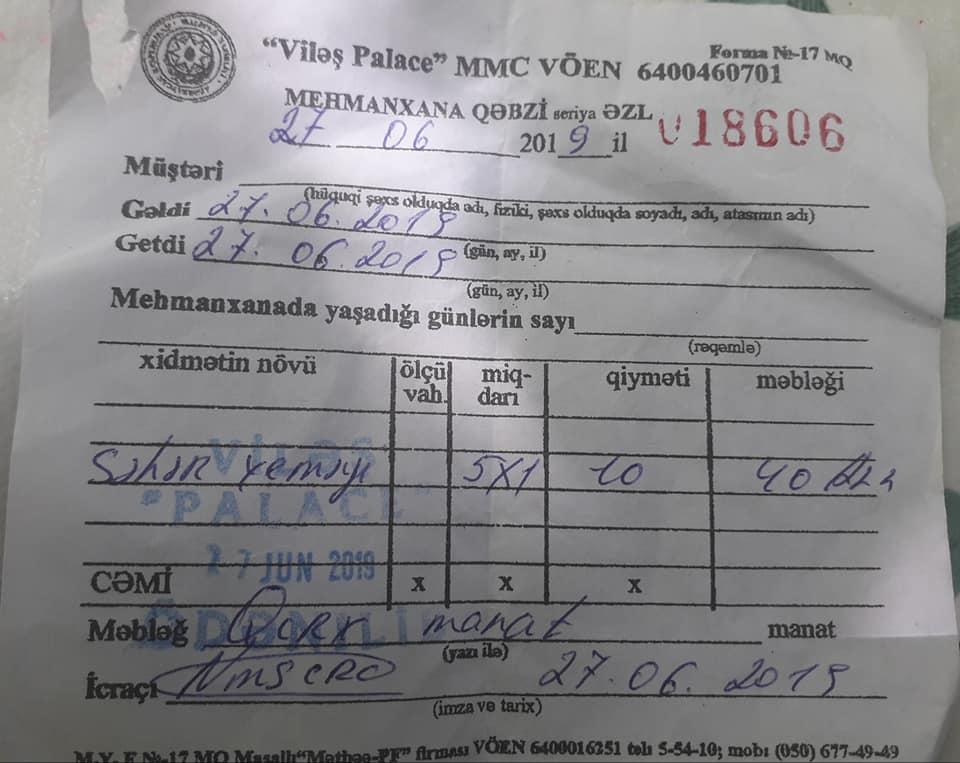 "Viləş Palace" MMC VÖEN 6400460701
Forma №-17 MQ
MEHMANXANA QƏBZİ seriya ƏZL 018606
27 06 2019 il
Müştəri
(hüquqi şəxs olduqda adı, fiziki, şəxs olduqda soyadı, adı, atasının adı)
Gəldi 27.06.2019
(gün, ay, il)
Getdi 27.06.2019
(gün, ay, il)
Mehmanxanada yaşadığı günlərin sayı
(rəqəmlə)
xidmətin növü ölçü vah. miq-darı qiyməti məbləği
Səhər yeməyi 5X1 10 40 Azn
VİLƏŞ
"PALACE"
27 JUN 2019
ÖDƏNİLİ
CƏMİ x x x
Məbləğ Qırx manat manat
(yazı ilə)
İcraçı 27.06.2019
(imza və tarix)
M.Y. F №-17 MQ Masallı "Mətbəə-PF" firması VÖEN 6400016251 tel: 5-54-10; mobi (050) 677-49-49